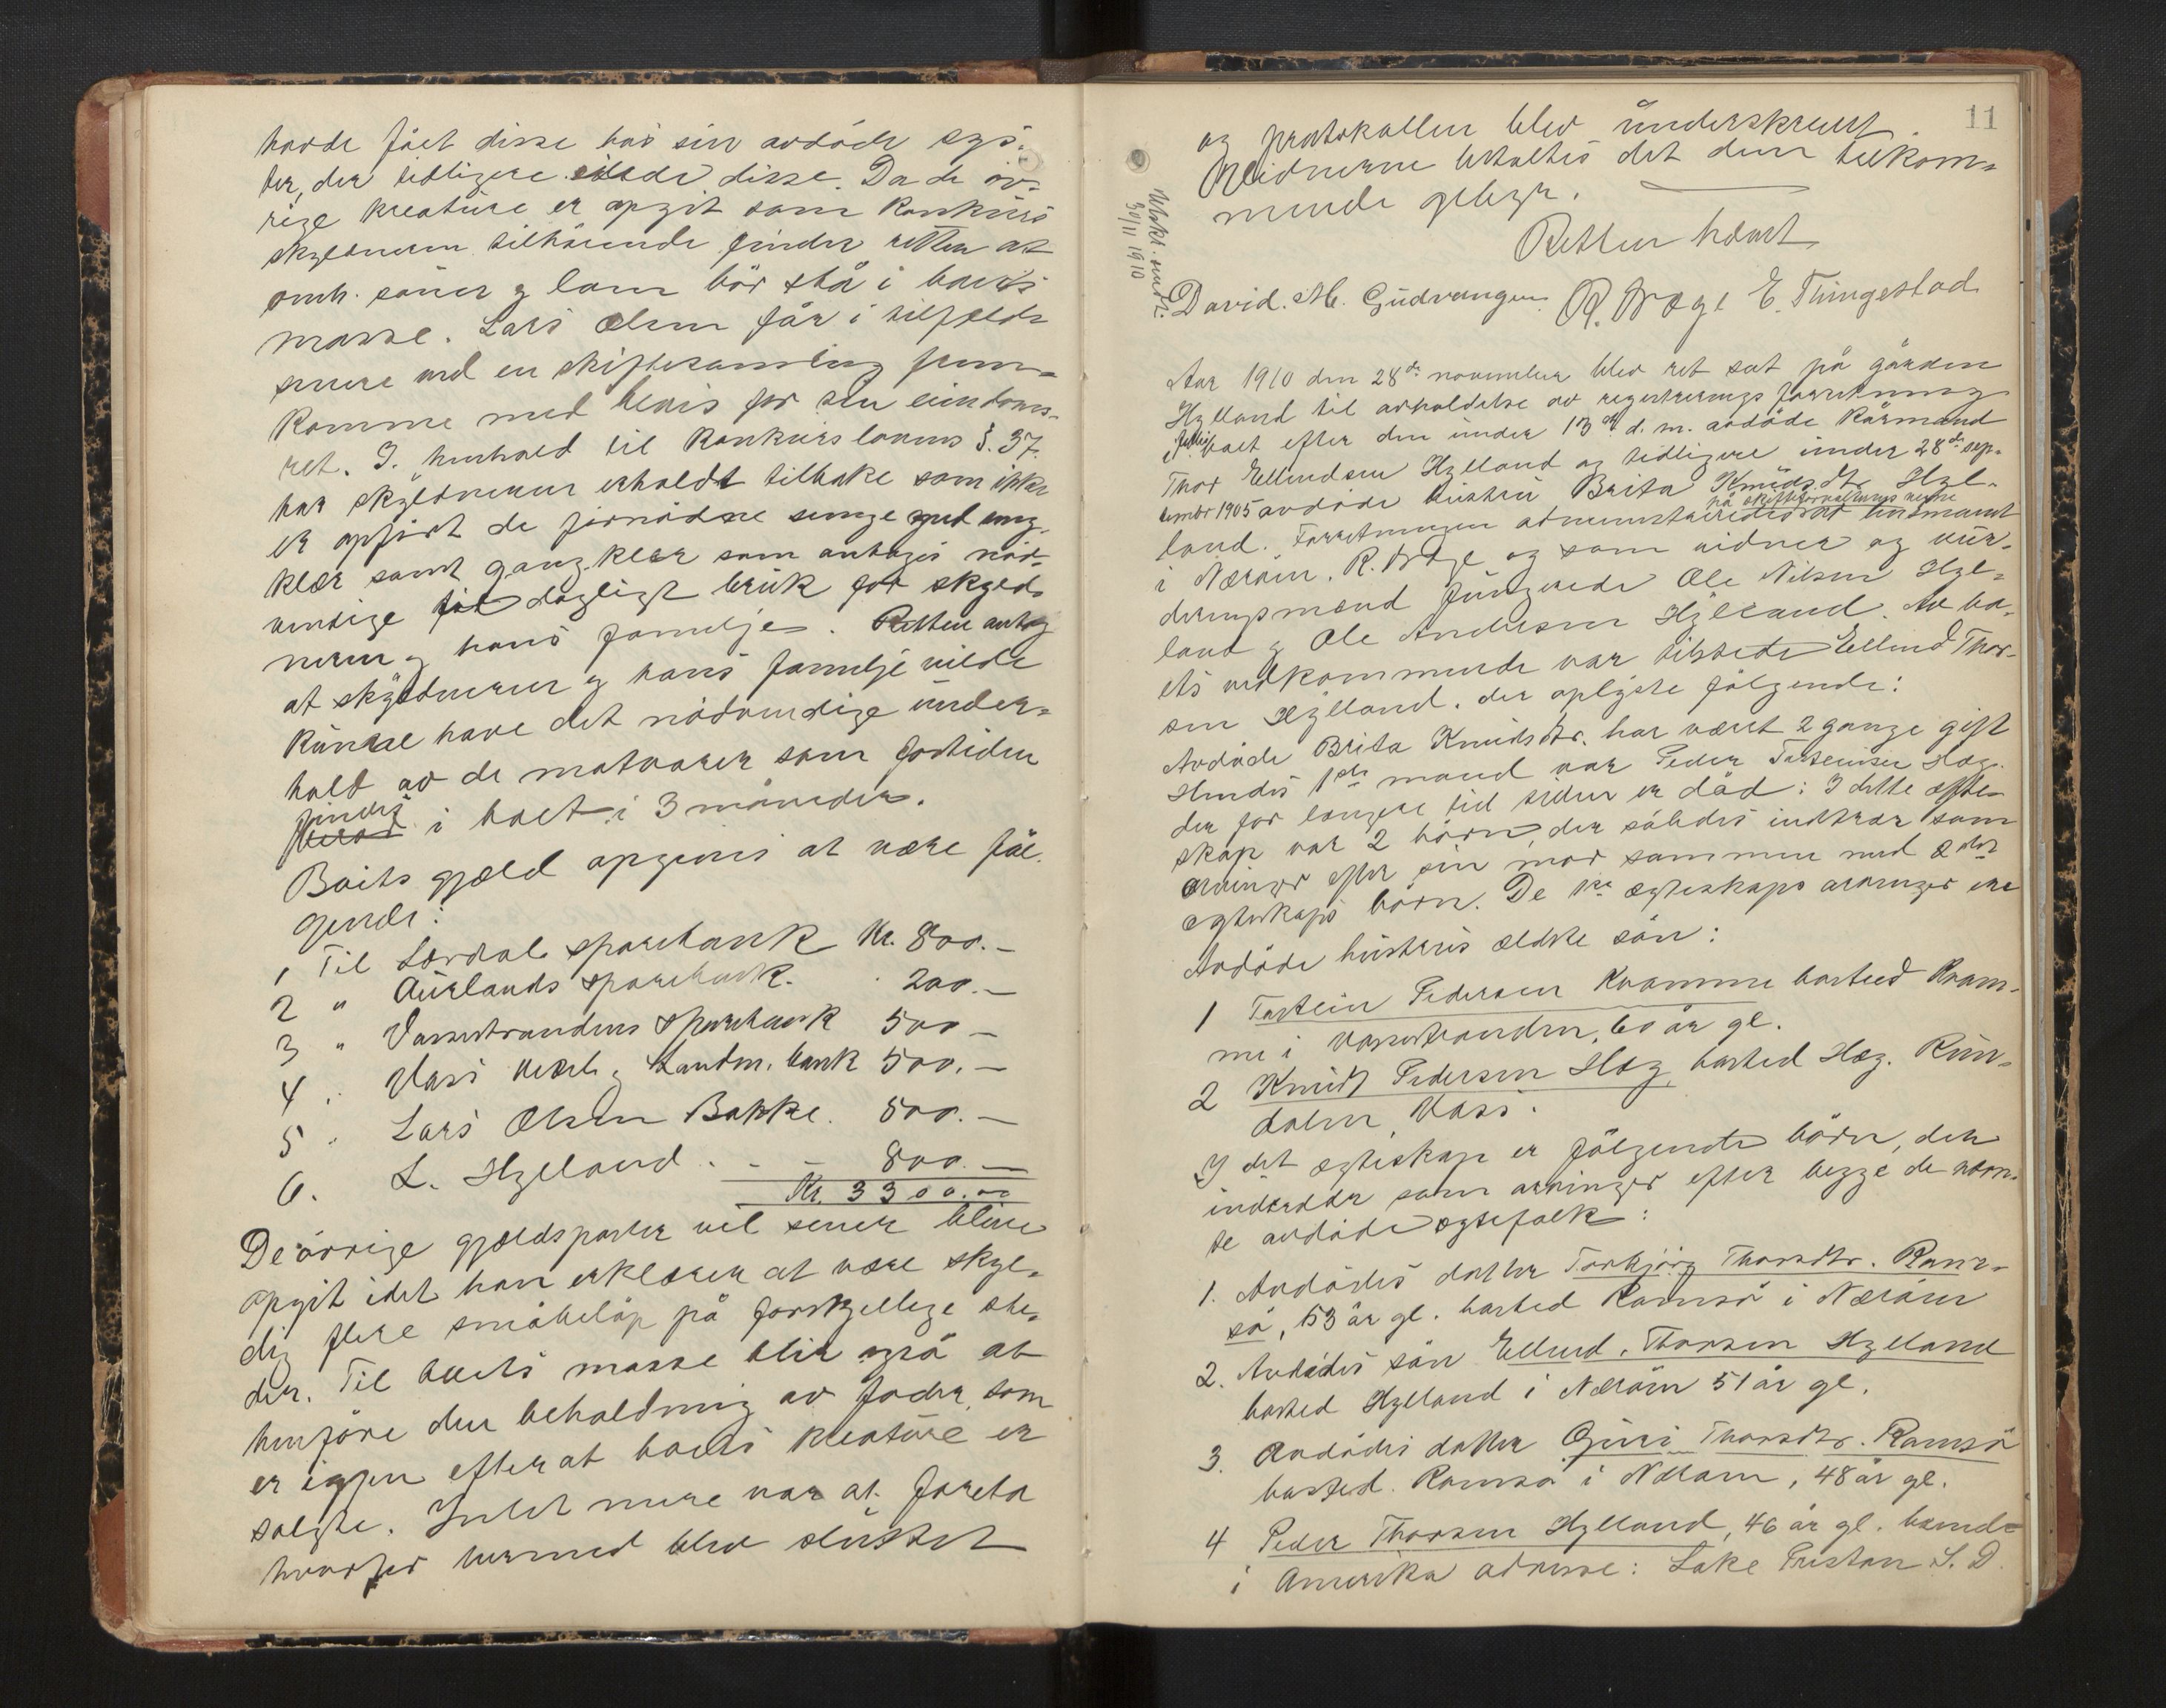 havde fået disse hos sin avdöde sys-
ter, der tidligere eiede disse. Da de öv-
rige kreature er opgit som konkurs
skyldneren tilhörende finder retten at
omh. sauer og lam bör stå i boets
masse. Lars Olsen får i tilfælde
senere ved en skiftesamling frem-
komme med bevis for sin eiendoms-
ret. I henhold til konkurslovens §. 37.
har skyldneren erholdt tilbake som ikke
er opfört de fornödne senge med seng-
klær samt gangklær som antages nöd-
vendige til dagligt bruk for skyld-
neren og hans familje. Retten antog
at skyldneren og hans familje vilde
kunne have det nödvendige under-
hold av de matvarer som fortiden
findes
i boet i 3 måneder.
Boets gjæld opgives at være föl-
gende:
1 Til Lærdals sparebank Kr. 800.-
2 " Aurlands sparebank. 200.-
3 " Vassstrandens sparebank 500-
4 " Voss Værk. og Landm. bank 500.-
5 " Lars Olsen Bakke. 500.-
6. L. Hylland . - - 800.-
Kr. 3300.00
De övrige gjældsposter vil senere blive
opgit idet han erklærer at være skyl-
dig flere småbelöp på forskjellige ste-
der. Til boets masse blir også at
henföre den beholdning av foder, som
er igjen efterat boets kreature er
solgte. Intet mere var at foreta
hvorfor hermed blev sluttet
11
og protokollen blev underskrevet.
Vidnerne betaltes det dem tilkom-
mende gebyr.
Retten hævet
David. M. Gudvangen. R. Brage E. Thingestad
30/11 1910
Aar 1910 den 28de november blev ret sat på gården
Hylland til avholdelse av registrerings forretning
i fellesboet efter den under 13de d. m. avdöde kårmand
Thor Ellendsen Hylland og tidligere under 28de sep-
tember 1905 avdöde hustru Brita Knudsdtr. Hyl-
på skifteforvalterens vegne
land. Forretningen administreredes av lensmand
i Næröen. R. Brage og som vidner og vur-
deringsmænd fungerede Ole Nilsen Hyl-
land og Ole Andersen Hylland. Av bo-
ets vedkommende var tilstede Ellend Thor-
sen Hylland. der oplyste fölgende:
Avdöde Brita Knudsdtr. har været 2 gange gift
Hendes 1ste mand var Peder Torsteinsen Hæg.
der for længere tid siden er död: I dette ægte-
skap var 2 börn, der således indtrær som
arvinger efter sin mor sammen med 2det
ægteskaps börn. De 1ste ægteskaps arvinger ere
Avdöde hustrus ældste sön:
1 Torstein Pedersen Kvamme bosted Kvam-
me i Vassstranden, 60 år gl.
2 Knudt Pedersen Hæg, bosted Hæg. Run-
dalen, Voss.
I det ægteskap er fölgende börn, der
indtrær som arvinger efter begge de nævn-
te avdöde ægtefolk:
1. Avdödes datter Torbjörg Thorsdtr. Ram-
sö, 53 år gl. bosted Ramsö i Næröen
2. Avdödes sön Ellend. Thorsen Hylland
bosted Hylland i Næröen 51 år gl.
3. Avdödes datter Guri Thorsdtr. Ramsö
bosted. Ramsö i Næröen, 48 år gl.
4 Peder Thorsen Hylland, 46 år gl. boende
i Amerika adresse: Lake Preston S. D.